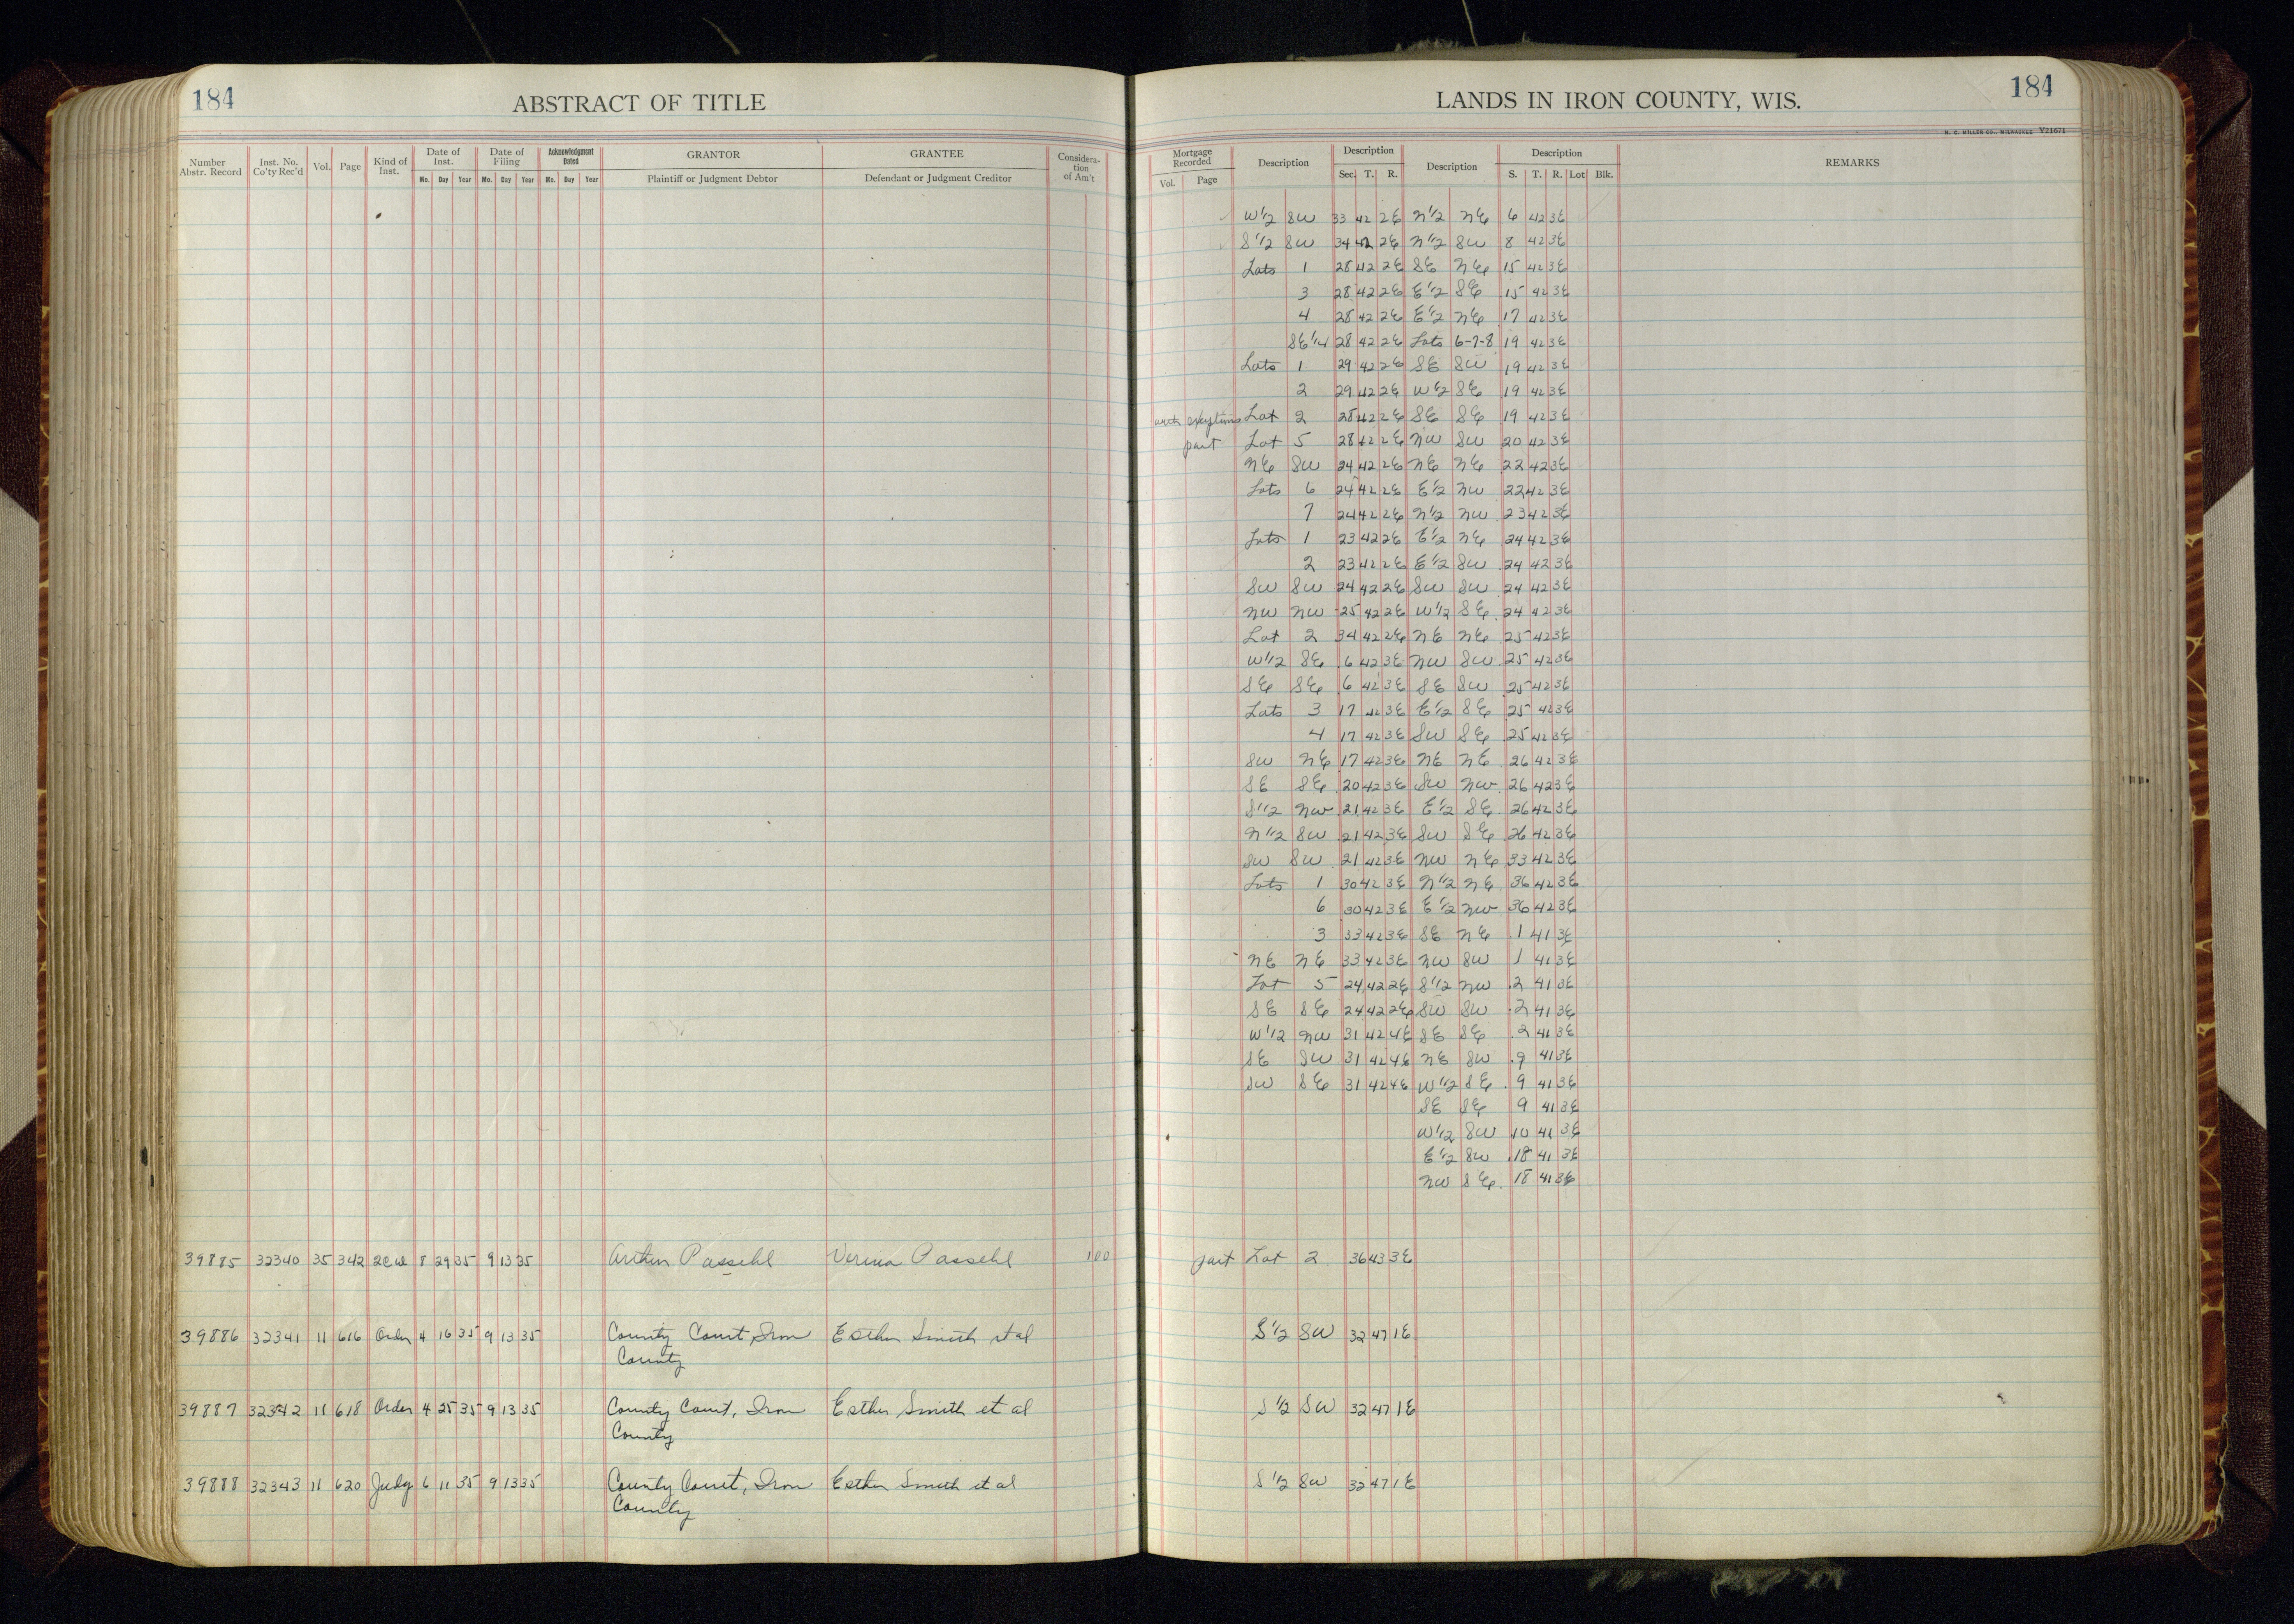 184
ABSTRACT OF TITLE
Number Abstr. Record
Inst. No. Co'ty Rec'd
Vol.
Page
Kind of Inst.
Date of Inst.
Mo. Day Year
Date of Filing
Mo. Day Year
Acknowledgment Dated
Mo. Day Year
GRANTOR
Plaintiff or Judgment Debtor
GRANTEE
Defendant or Judgment Creditor
Considera-
tion
of Am't
39885 32340 35 342 2cw 8 29 35 9 13 35 Arthur Passehl Verina Passehl 100
39886 32341 11 616 Order 4 16 35 9 13 35 County Court, Iron Esther Smith et al
County
39887 32342 11 618 Order 4 25 35 9 13 35 County Court, Iron Esther Smith et al
County
39888 32343 11 620 Judg 6 11 35 9 13 35 County Court, Iron Esther Smith et al
County
LANDS IN IRON COUNTY, WIS.
184
H. C. MILLER CO., MILWAUKEE Y21671
Mortgage Recorded
Vol. Page
Description
Description
Sec. T. R.
Description
Description
S. T. R. Lot Blk.
REMARKS
W1/2 SW 33 42 2E N1/2 NE 6 42 3E
S1/2 SW 34 42 2E N1/2 SW 8 42 3E
Lots 1 28 42 2E SE NE 15 42 3E
3 28 42 2E E1/2 SE 15 42 3E
4 28 42 2E E1/2 NE 17 42 3E
SE1/4 28 42 2E Lots 6-7-8 19 42 3E
Lots 1 29 42 2E SE SW 19 42 3E
2 29 42 2E W1/2 SE 19 42 3E
Lot 2 28 42 2E SE SE 19 42 3E
part Lot 5 28 42 2E NW SW 20 42 3E
NE SW 24 42 2E NE NE 22 42 3E
Lots 6 24 42 2E E1/2 NW 22 42 3E
7 24 42 2E N1/2 NW 23 42 3E
Lots 1 23 42 2E E1/2 NE 24 42 3E
2 23 42 2E E1/2 SW 24 42 3E
SW SW 24 42 2E SW SW 24 42 3E
NW NW 25 42 2E W1/2 SE 24 42 3E
Lot 2 34 42 2E NE NE 25 42 3E
W1/2 SE 6 42 3E NW SW 25 42 3E
SE SE 6 42 3E SE SW 25 42 3E
Lots 3 17 42 3E E1/2 SE 25 42 3E
4 17 42 3E SW SE 25 42 3E
SW NE 17 42 3E NE NE 26 42 3E
SE SE 20 42 3E SW NW 26 42 3E
S1/2 NW 21 42 3E E1/2 SE 26 42 3E
N1/2 SW 21 42 3E SW SE 26 42 3E
SW SW 21 42 3E NW NE 33 42 3E
Lots 1 30 42 3E N1/2 NE 36 42 3E
6 30 42 3E E1/2 NW 36 42 3E
3 33 42 3E SE NE 1 41 3E
NE NE 33 42 3E NW SW 1 41 3E
Lot 5 24 42 2E S1/2 NW 2 41 3E
SE SE 24 42 2E SW SW 2 41 3E
W1/2 NW 31 42 4E SE SE 2 41 3E
SE SW 31 42 4E NE SW 9 41 3E
SW SE 31 42 4E W1/2 SE 9 41 3E
SE SE 9 41 3E
W1/2 SW 10 41 3E
E1/2 SW 18 41 3E
NW SE 18 41 3E
part Lot 2 36 43 3E
S1/2 SW 32 47 1E
S1/2 SW 32 47 1E
S1/2 SW 32 47 1E